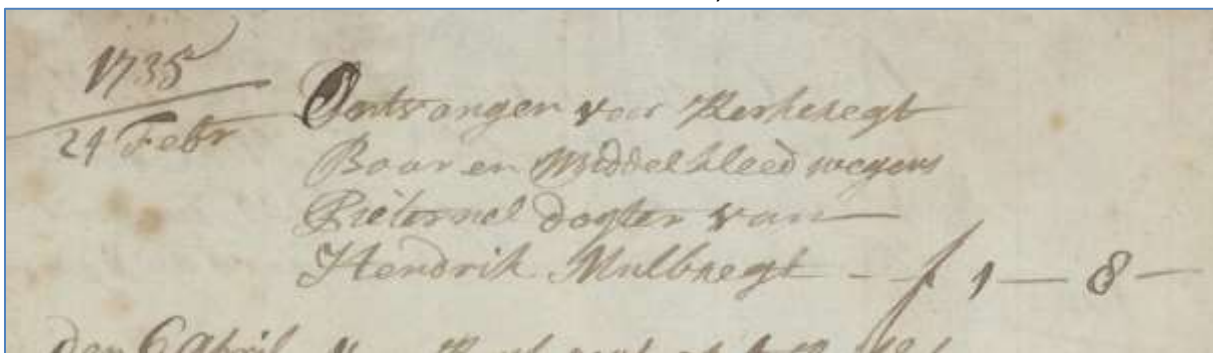 1735
24 Febr
Ontvangen voor Kerkeregt
Baar en Middelkleed wegens
Pieternel dogter van
Hendrik Mulbregt - f 1 — 8 —
den 6 April